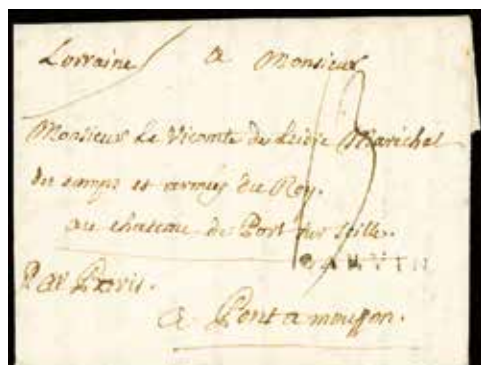 Lorraine a Monsieur
Monsieur Le Vicomte de Maréchal
du camps et armés du Roy.
au chateau de Port sur seille.
CARVIN
Par Paris.
a Pont a mousson.